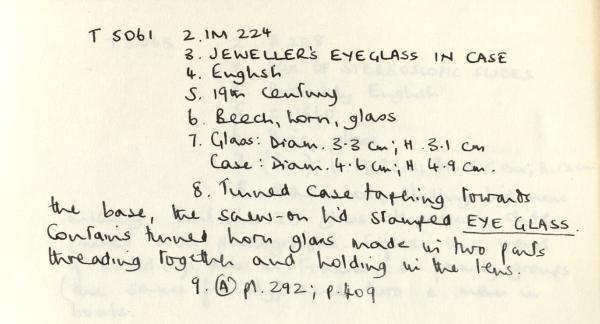 T 5061 2. IM 224
3. JEWELLER'S EYEGLASS IN CASE
4. English
5. 19th Century
6. Beech, horn, glass
7. Glass: Diam. 3.3 cm; H. 3.1 cm
Case: Diam. 4.6 cm; H. 4.9 cm.
8. Turned case tapering towards
the base, the screw-on lid stamped EYE GLASS.
Contains turned horn glass made in two parts
threading together and holding in the lens.
9. (A) pl. 292; p. 409